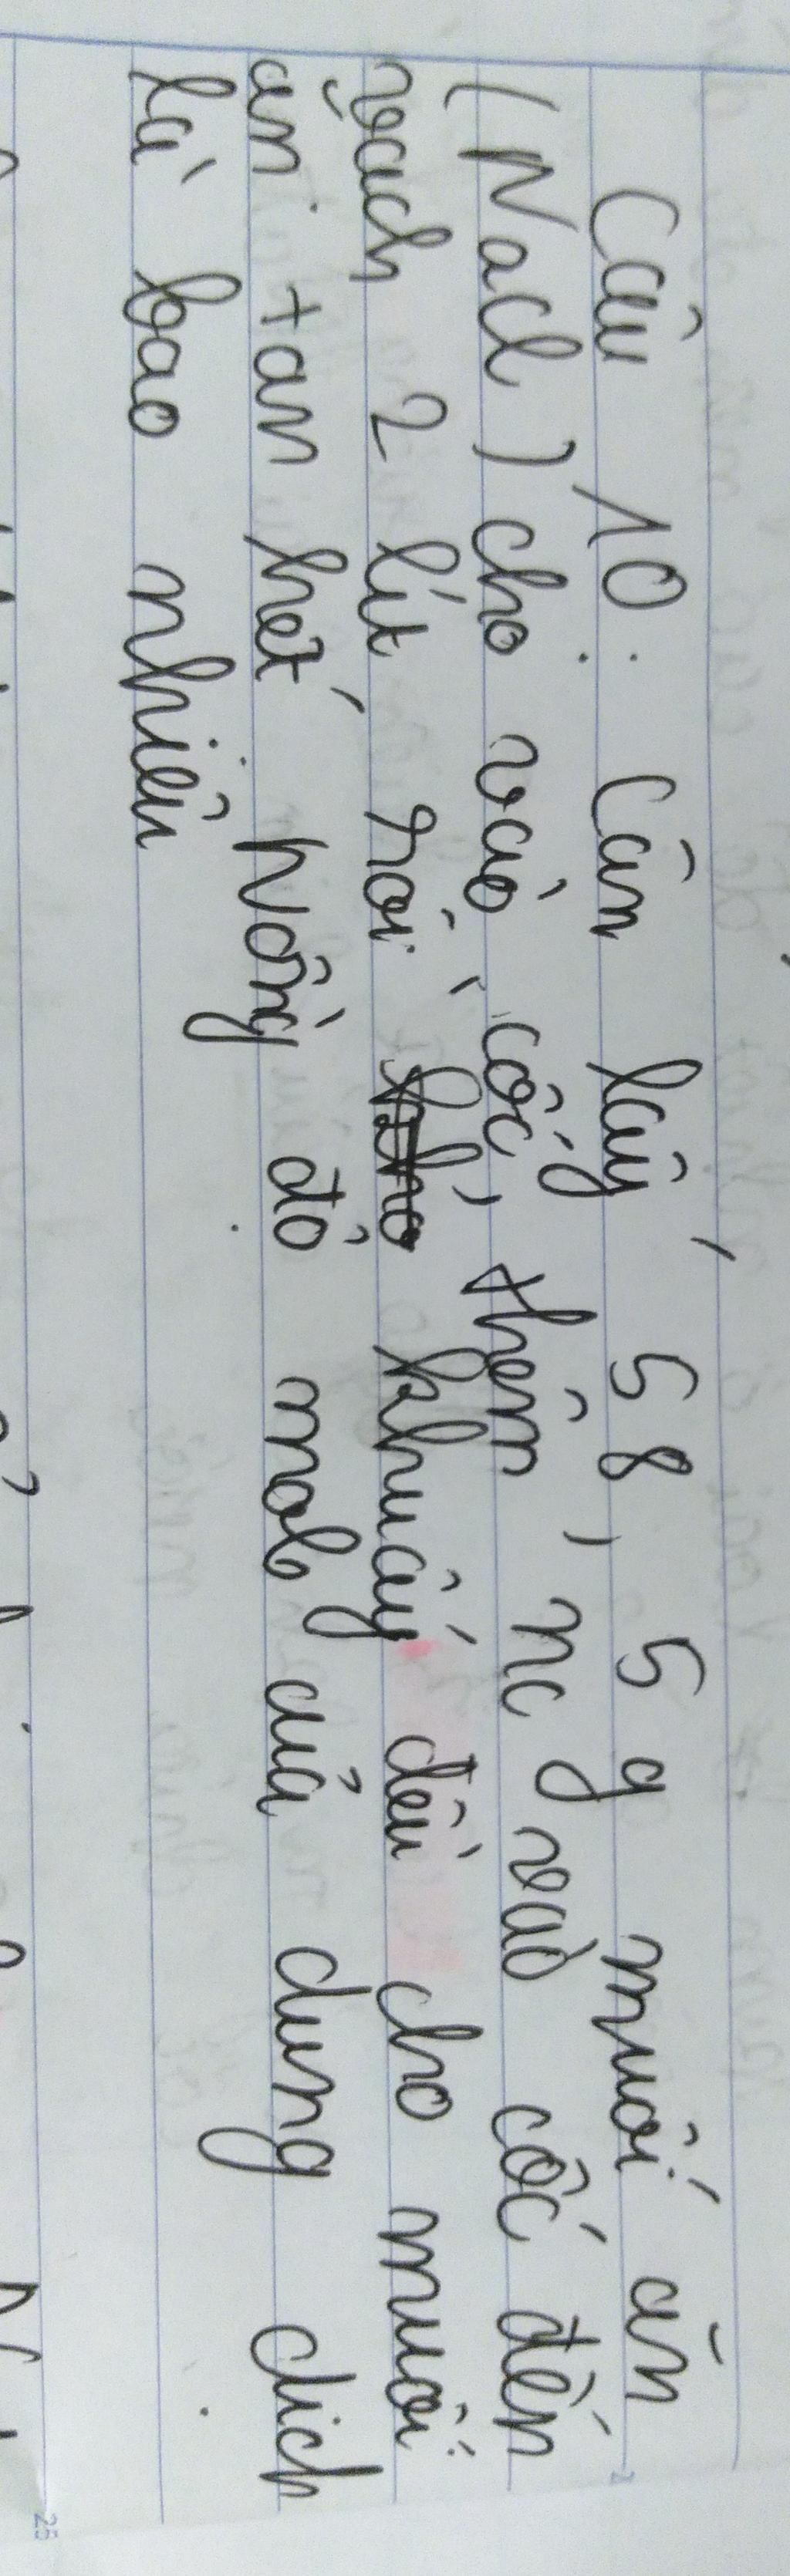 Câu 10: Cân lấy 58,5g muối ăn
(Nacl) cho vào cốc, thêm, nc y vào cốc đến
vạch 2 lít rồi khuấy đều cho muối
ăn tan hết. Nồng độ mol của dung dịch
là bao nhiêu
25